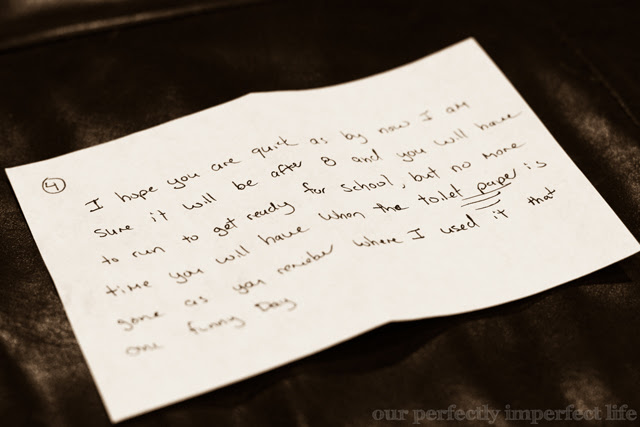 4
I hope you are quik as by now I am
sure it will be after 8 and you will have
to run to get ready for school, but no more
time you will have when the toilet paper is
gone as you remeber where I used it that
one funny Day
our perfectly imperfect life